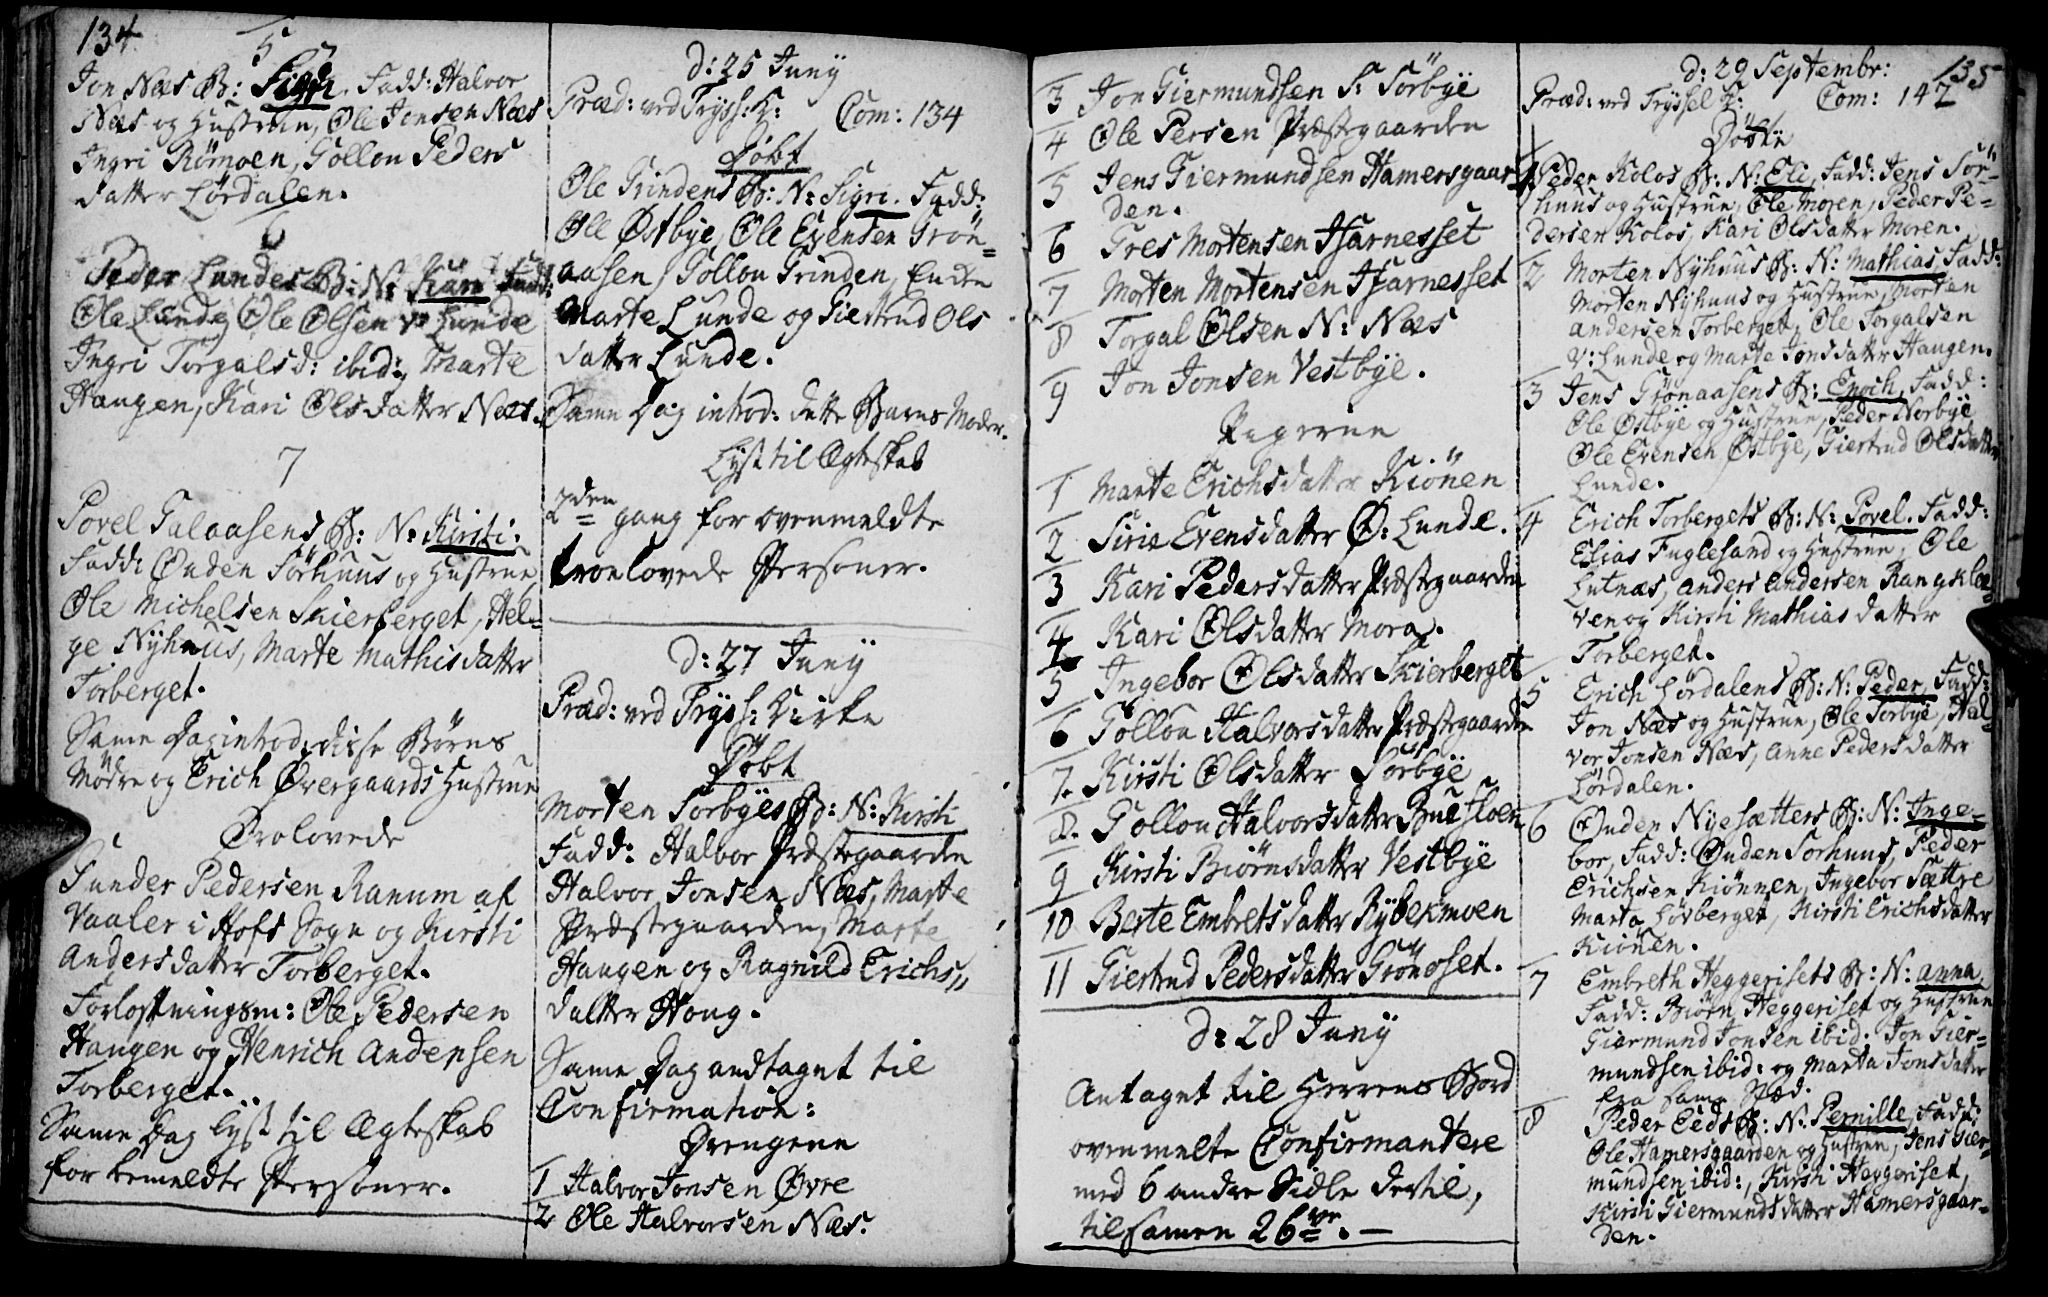 134
5
Jon Næs B: Sigri. Fadd: Halvor
Næs og Hustrue, Ole Jonsen Næs
Ingri Römoen, Gollou Peders
datter Lördalen.
6
Peder Lundes B: N: Kari Fadd:
Ole Lunde, Ole Olsen V: Lunde
Ingri Torgalsd: ibid:, Marte
Haugen, Kari Olsdatter Næs.
7
Povel Galaasens B: N: Kirsti:
Fadd: Ouden Sörhuus og Hustrue,
Ole Michelsen Skierberget, Hel-
ge Nyhuus, Marte Mathisdatter
Torberget.
Same Dag introd: disse Börns
Mödre og Erich Övergaards Hustrue
Trolovede
Gunder Pedersen Ranum af
Vaaler i Hofs Sogn og Kirsti
Andersdatter Torberget.
Forlofningsm: Ole Pedersen
Haugen og Henrich Andersen
Torberget.
Same Dag lyst til Ægteskab
for bemeldte Personer.
d: 25 Juny
Præd: ved Tryss: K: Com: 134
Döbt
Ole Grindens B: N: Sigri. Fadd:
Ole Östbye, Ole Evensen Grön-
aasen, Gollou Grinden, Enden
Marte Lunde og Giertrud Ols
datter Lunde.
Same Dag introd: dette Barns Moder.
Lyst til Ægteskab
2den gang for ovenmeldte
troelovede Personer.
d: 27 Juny
Præd: ved Tryss: Kirke
Döbt
Morten Sorbyes B: N: Kirsti
Fadd: Halvor Præstegaarden
Halvor Jonsen Næs, Marte
Præstegaarden, Marte
Haugen og Ragnild Erichs„
datter Houg.
Same Dag andtaget til
Confirmation:
Drengene
1 Halvor Jonsen Övre
2 Ole Halvorsen Næs.
3 Jon Giermundsen S: Sörbye
4 Ole Persen Præstegaarden
5 Jens Giermundsen Hamersgaar-
den.
6 Tres Mortensen Hiarnesset
7 Morten Mortensen Hiarnesset
8 Torgal Olsen N: Næs
9 Jon Jonsen Vestbye.
Pigerne
1 Marte Erichsdatter Kiönen
2 Sirie Evensdatter Ö: Lunde.
3 Kari Pedersdatter Præstegaarden
4 Kari Olsdatter Mora.
5 Ingebor Olsdatter Skierberget
6 Gollou Halvorsdatter Præstegaarden
7. Kirsti Olsdatter Sorbye
8. Gollou Halvorsdatter Bueffloen
9 Kirsti Biörnsdatter Vestbye
10 Berte Embretsdatter Rybekmoen
11 Giertrud Pedersdatter Grönoset.
d: 28 Juny
Antaget til Herrens Bord
ovenmelte Confirmantere
med 6 andre Sidle dertil,
tilsamen 26ve. —
135
d: 29 Septembr:
Præd: ved Tryssel K: Com: 142
Döbte
1 Peder Kolos B: N: Eli, Fadd: Jens Sör-
huus og Hustrue, Ole Moren, Peder Pe-
dersen Kolos, Kari Olsdatter Moren.
2 Morten Nyhuus B: N: Mathias Fadd:
Morten Nyhuus og Hustrue, Morten
Andersen Torberget, Ole Torgalsen
V: Lunde og Marte Jonsdatter Haugen.
3 Jens Grönaasens B: Enoch, Fadd:
Ole Östbye og Hustrue, Peder Norbye
Ole Evensen Östbye, Giertrud Olsdatter
Lunde.
4 Erich Torbergets B: N: Povel. Fadd:
Elias Fuglesand og Hustrue, Ole
Lutnæs, Anders Andersen Rangkle-
ven og Kirsti Mathiasdatter
Torberget.
5 Erich Lördalens B: N: Peder, Fadd:
Jon Næs og Hustrue, Ole Sorbye, Hal-
vor Jonsen Næs, Anne Pedersdatter
Lördalen.
6 Ouden Nyesætters B: N: Inge-
bor, Fadd: Ouden Sorhuus, Peder
Erichsen Kiönnen, Ingebor Sættre
Marta Lövberget, Kirsti Erichsdatter
Kiönen.
7 Embreth Heggerisets B: N: Anna
Fadd: Biörn Heggeriset og Hustrue
Giermund Jonsen ibid: Jon Gier-
mundsen ibid: og Marta Jonsdatter
fra same Sted.
8 Peder Eeds B: N. Pernille Fadd:
Ole Hamersgaarden og Hustrue, Jens Gier-
mundsen ibid:, Kirsti Heggeriset,
Kirsti Giermundsdatter Hamersgaar-
den.